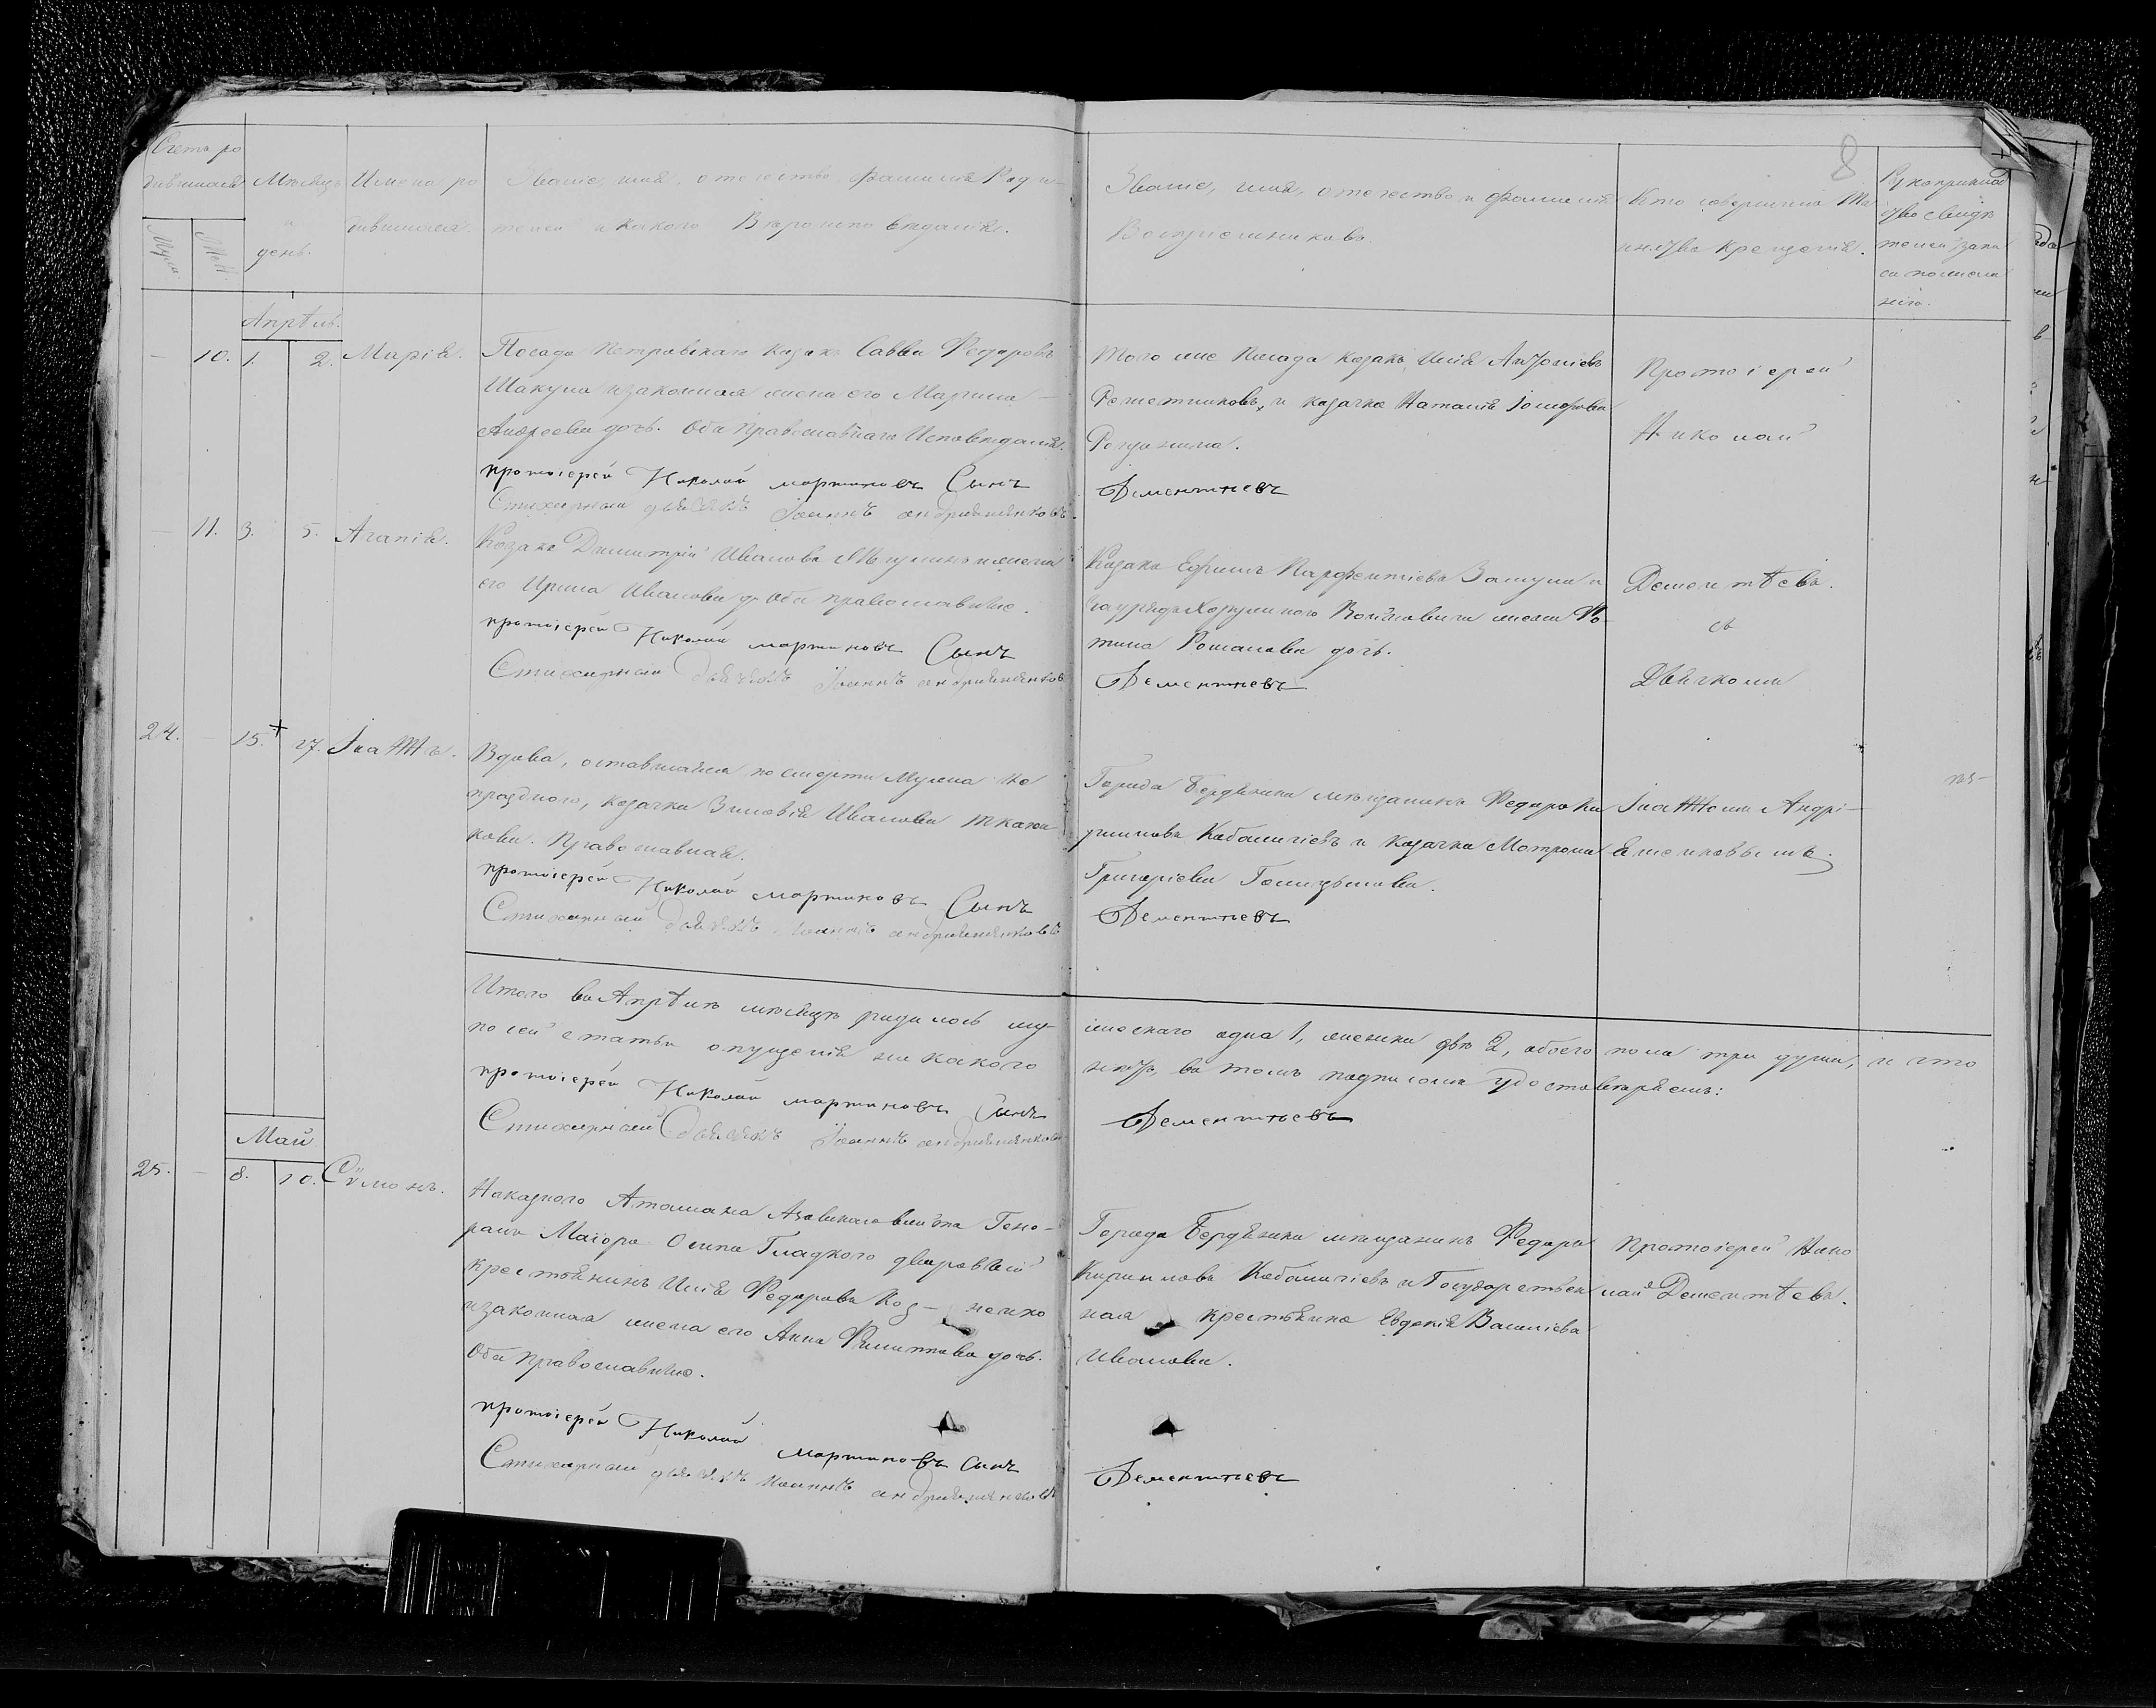 8
Счетъ ро
дившихся
Муж.
Жен.
Мѣсяцъ
и
день.
Имена ро
дившихся.
Званіе, имя, отечество, фамилія Роди-
телей и какого Вѣроисповѣданія.
Званіе, имя, отечество и фамилія
Воспріемниковъ.
Кто совершилъ Та
инство Крещенія.
Рукоприклад
ство свидѣ
телей записи
по желанію
Апрѣль.
10. 1. 2. Марія.
Посада Петровскаго казакъ Савва Федоровъ
Шакула и законная жена его Марина
Андреева дочь. Оба Православнаго Исповѣданія.
протоіерей Николай мартиновъ Сынъ
Стихарный дьячекъ Іоаннъ андріяшенковъ
Того же Посада казакъ Илія Антоніевъ
Решетниковъ, и казачка Наталія
Дементьевъ
Протоіерей
Николай
11. 3. 5. Агапія.
Казакъ Димитрій Ивановъ и жена
его Ирина Иванова д. Оба православные.
протоіерей Николай мартиновъ Сынъ
Стихарный дьячекъ Іоаннъ андріяшенковъ
Казакъ Ефимъ Парфентіевъ и
жена Фо-
тина Романова дочь.
Дементьевъ
Дементѣевъ.
съ
Дьячкомъ
24. – 15. 17. Іоаннъ.
Вдова, оставшаяся по смерти Мужа не
праздною, казачка Зиновія Иванова
кова. Православная.
протоіерей Николай мартиновъ Сынъ
Стихарный дьячекъ Іоаннъ андріяшенковъ
Города Бердянска мѣщанинъ Федоръ Ки
рилловъ и казачка Матрона
Григоріева
Дементьевъ
Іоанномъ Андрі-
яшенковымъ.
Итого въ Апрѣлѣ мѣсяцѣ родилось му-
жескаго одна 1, женска двѣ 2, обоего пола три души, и что
по сей статьи опущенія ни какого
нѣтъ, въ томъ подписомъ удостовѣряемъ:
протоіерей Николай мартиновъ Сынъ
Дементьевъ
Стихарный дьячекъ Іоаннъ андріяшенковъ
Май
25. – 8. 10. Сѵмонъ.
Наказного Атамана Азовскаго войска Гене-
ралъ Маіора Осипа Гладкого дворовый
крестьянинъ Илія Федоровъ
и законная жена его Анна Филиппова дочь.
Оба православные.
протоіерей Николай мартиновъ сынъ
Стихарный дьячекъ Іоаннъ андріяшенковъ
Города Бердянска мѣщанинъ Федоръ
Кирилловъ и Государствен
ная крестьянка Евдокія Василіева
Иванова.
Дементьевъ
Протоіерей Нико
лай Дементѣевъ.